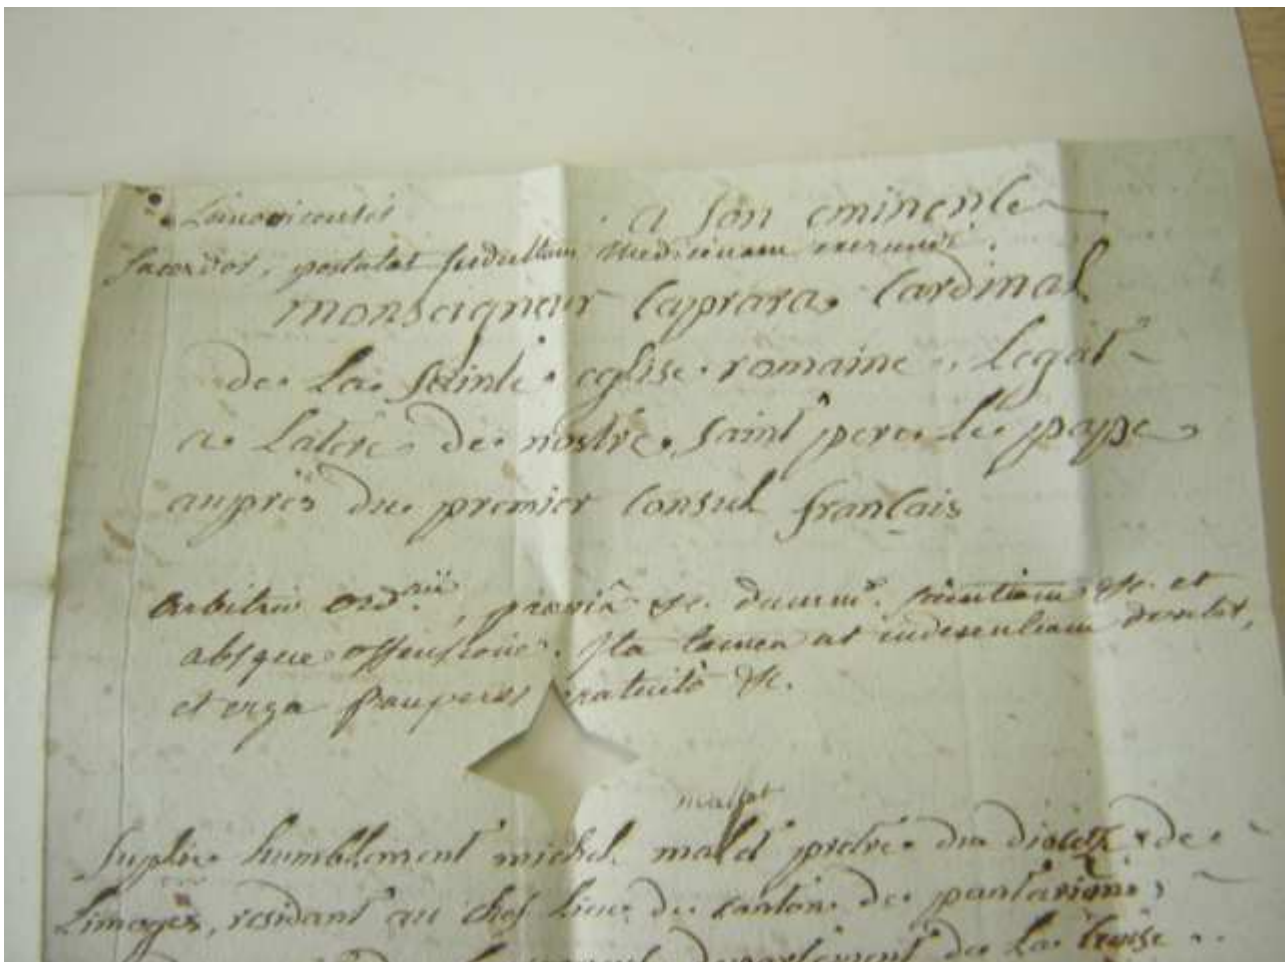 Lemovicensis
A son eminence
Sacerdos, postulat facultatem medicinam exercendi.
monseigneur Caprara, Cardinal
de La Sainte eglise romaine, Legat
a Latere de nostre Saint pere le pape
auprès du premier Consul français
Arbitrio ord.rii, praeviâ &c. dummo. scientiam &c. et
absque offensione. Ita tamen ut indecentiam devitet,
et erga pauperes gratuitò &c.
mallet
Suplie humblement michel malet pretre du diocese de
Limoges, residant au chef lieu du canton de pontarion,
departement de La Creuse